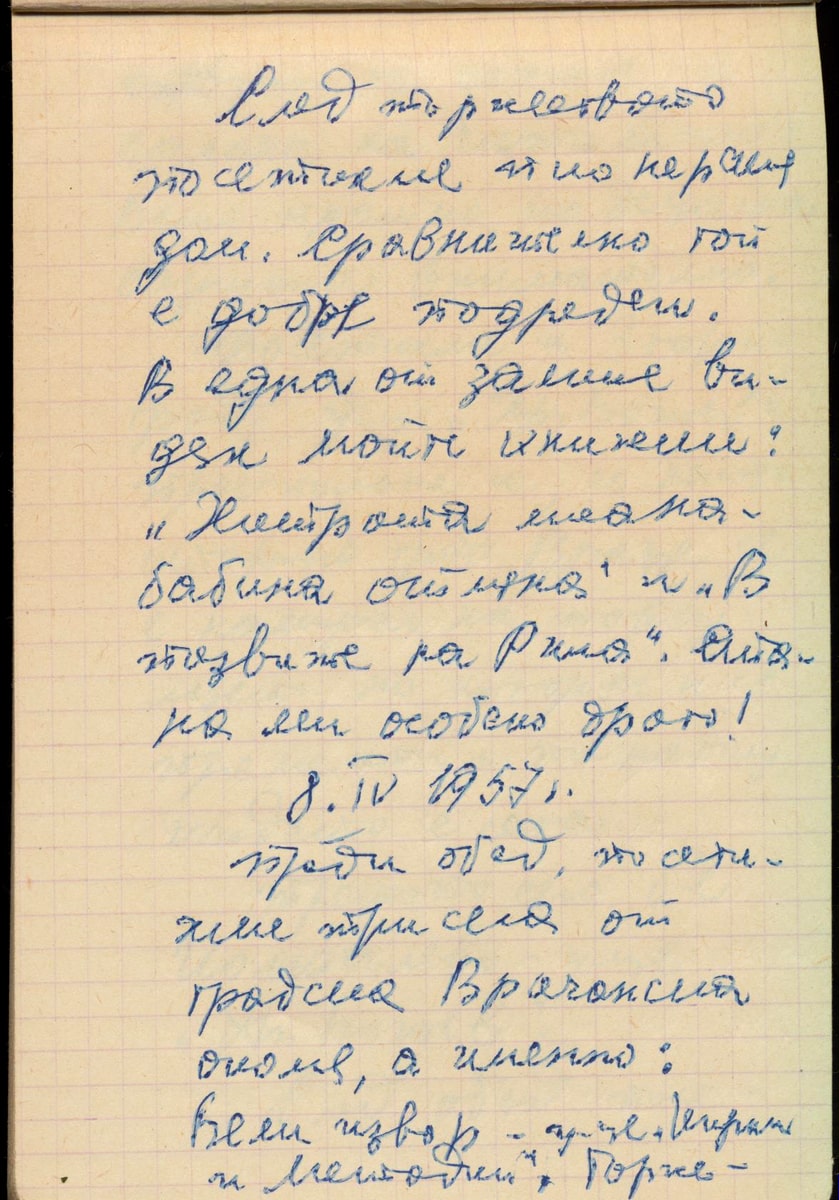 След тържеството
посетихме пионерския
дом. Сравнително той
е добре подреден.
В една от залите ви-
дях моите книжки:
"Хитрата мака-
бабина отмяна" и "В
на Рила". Ста-
на ми особено драго!
8. IV 1957 г.
Преди обед, посети-
хме три села от
градска Врачанска
околия, а именно:
Бели извор - уч-ще "Кирил
и Методий", Горно-